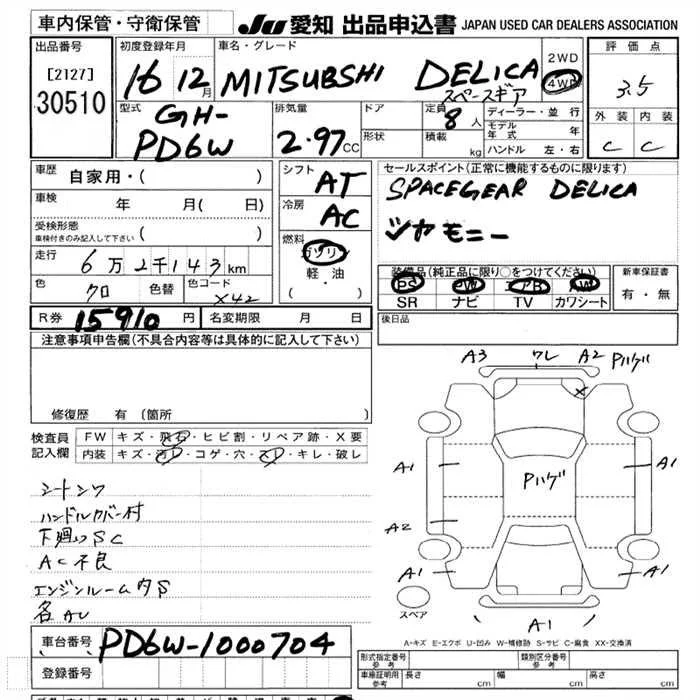 車内保管・守衛保管
JU 愛知 出品申込書 JAPAN USED CAR DEALERS ASSOCIATION
出品番号
[2127]
30510
初度登録年月
16 年 12 月
車名・グレード
MITSUBSHI DELICA
スペースギア
2WD
4WD
評価点
3.5
外装 内装
C C
型式
GH-
PD6W
排気量
2.97 CC
ドア
形状
定員
8人
積載
kg
ディーラー・並行
モデル年式 年
ハンドル 左・右
車歴
自家用・( )
車検
年 月( 日)
受検形態
車検付きのみ記入して下さい ( )
走行
6万2千143km
色
クロ
色替
色コード
X42
シフト
AT
冷房
AC
燃料
ガソリン
軽・油
( ・ )
セールスポイント(正常に機能するものに限ります)
SPACEGEAR DELICA
ツヤ モニー
装備品(純正品に限り○をつけてください)
PS PW エアB AW
SR ナビ TV カワシート
新車保証書
有・無
R券 15910 円
名変期限 月 日
後日品
注意事項申告欄(不具合内容等は具体的に記入して下さい)
修復歴 有 (箇所
検査員
記入欄
FW キズ・飛石・ヒビ割・リペア跡・X要
内装 キズ・汚レ・コゲ・穴・スレ・キレ・破レ
シートシワ
ハンドルカバー付
下廻りSC
AC不良
エンジンルーム内S
各AU
A3 ワレ A2 Pハゲ
A1 A1
Pハゲ
A2
A1 A1
A1
スペア
A-キズ E-エクボ U-凹み W-補修跡 S-サビ C-腐食 XX-交換済
車台番号
PD6W-1000704
登録番号
形式指定番号
参考
類別区分番号
参考
車庫証明用
参考
長さ cm
幅 cm
高さ cm